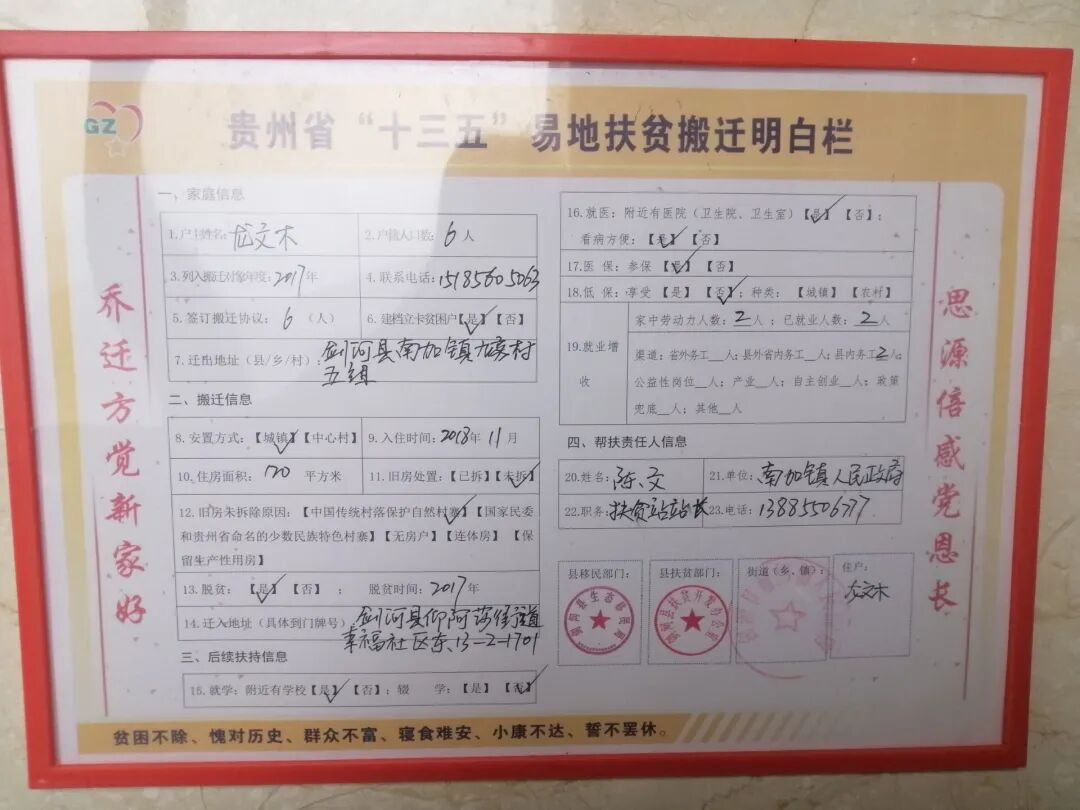 GZ
贵州省“十三五”易地扶贫搬迁明白栏
乔迁方觉新家好
一、家庭信息
1.户主姓名：龙文木
2.户籍人口数：6人
3.列入搬迁对象年度：2017年
4.联系电话：15185605063
5.签订搬迁协议：6（人）
6.建档立卡贫困户【是】【否】
7.迁出地址（县/乡/村）：剑河县南加镇九旁村
五组
二、搬迁信息
8.安置方式：【城镇】【中心村】
9.入住时间：2018年11月
10.住房面积：120 平方米
11.旧房处置：【已拆】【未拆】
12.旧房未拆除原因：【中国传统村落保护自然村寨】【国家民委
和贵州省命名的少数民族特色村寨】【无房户】【连体房】【保
留生产性用房】
13.脱贫：【是】【否】； 脱贫时间：2017年
14.迁入地址（具体到门牌号）：剑河县仰阿莎街道
幸福社区东、13-2-1701
三、后续扶持信息
15.就学：附近有学校【是】【否】；辍 学：【是】【否】
16.就医：附近有医院（卫生院、卫生室）【是】【否】；
看病方便：【是】【否】
17.医保：参保【是】【否】
18.低保：享受【是】【否】；种类：【城镇】【农村】
19.就业增收
家中劳动力人数：2人；已就业人数：2人
渠道：省外务工__人；县外省内务工__人；县内务工2人；
公益性岗位__人；产业__人；自主创业__人；政策
兜底__人；其他__人
四、帮扶责任人信息
20.姓名：陈文
21.单位：南加镇人民政府
22.职务：扶贫站站长
23.电话：13885506777
县移民部门：
剑河县生态移民局
县扶贫部门：
剑河县扶贫开发办公室
街道（乡、镇）：
住户：
龙文木
思源倍感党恩长
贫困不除、愧对历史、群众不富、寝食难安、小康不达、誓不罢休。